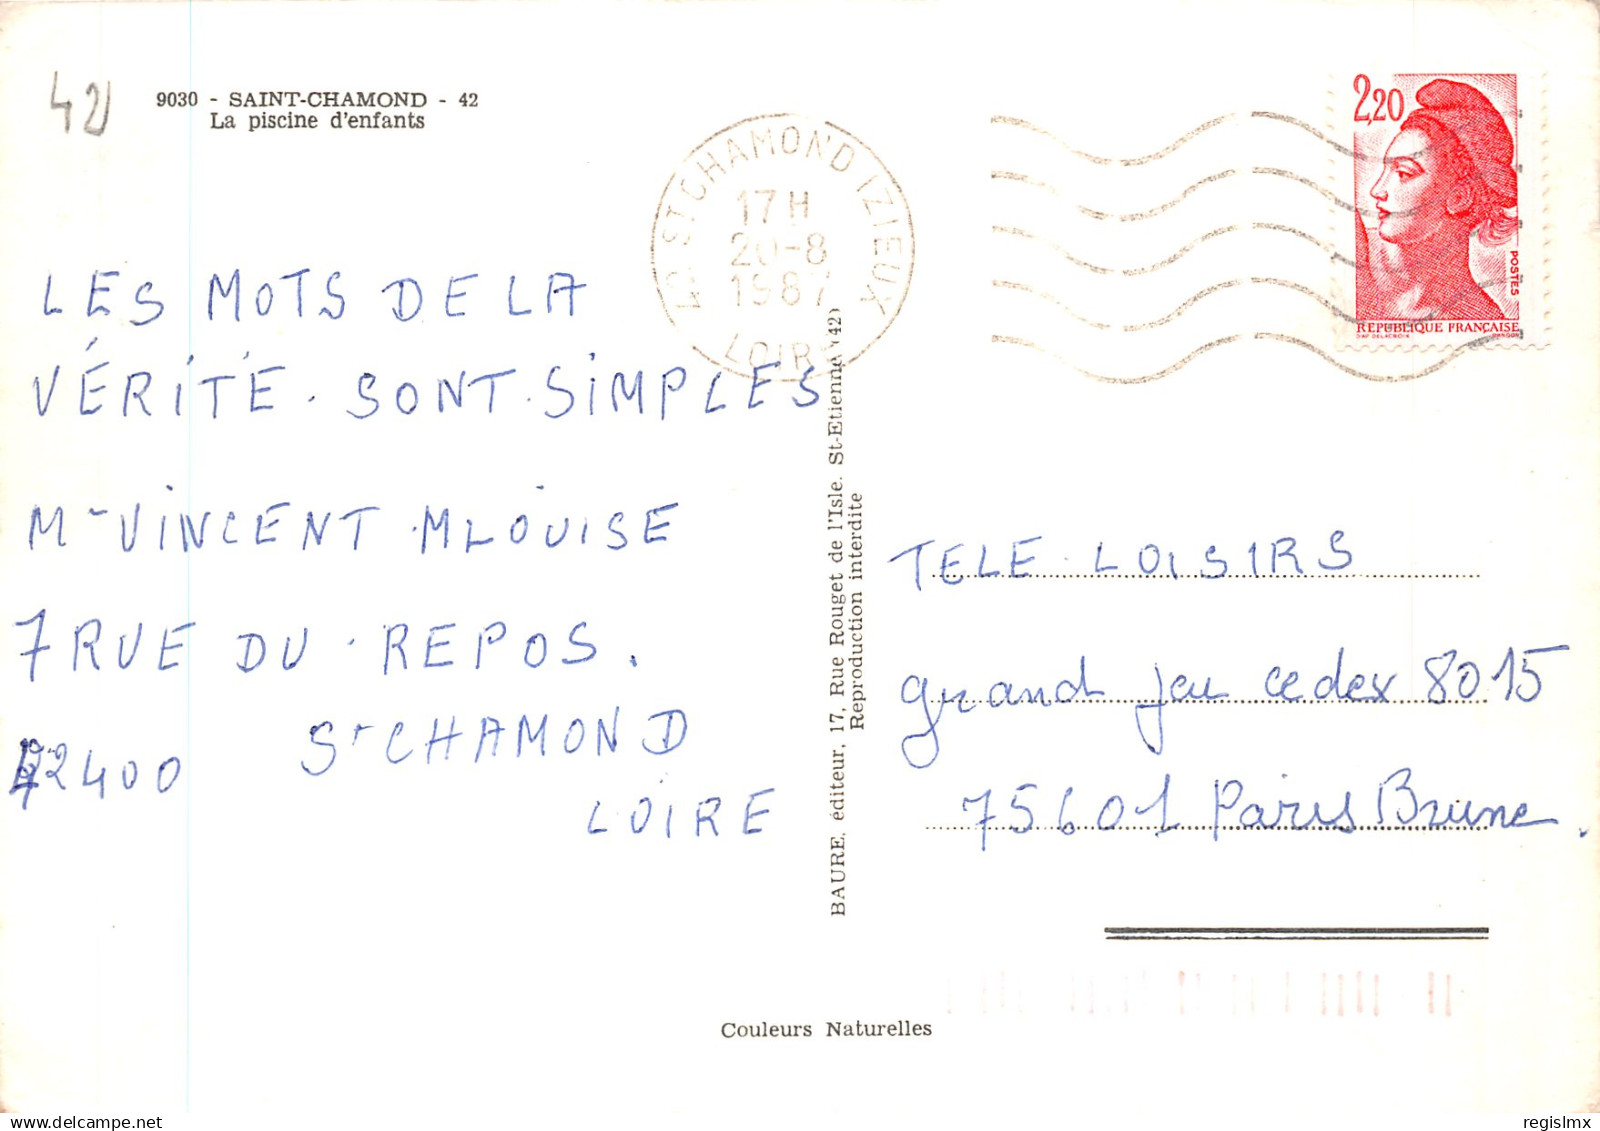 42
9030 - SAINT-CHAMOND - 42
La piscine d'enfants
42 ST CHAMOND IZIEUX
17 H
20-8
1987
LOIRE
2,20
POSTES
REPUBLIQUE FRANÇAISE
D'AP. DELACROIX
GANDON
LES MOTS DE LA
VÉRITÉ . SONT . SIMPLES
Mme VINCENT . MLOUISE
7 RUE DU . REPOS .
42400 St CHAMOND
LOIRE
BAURE. éditeur, 17, Rue Rouget de l'Isle. St-Etienne (42)
Reproduction interdite
TELE . LOISIRS
grand jeu cedex 8015
75601 Paris Brune .
Couleurs Naturelles
www.delcampe.net
regislmx